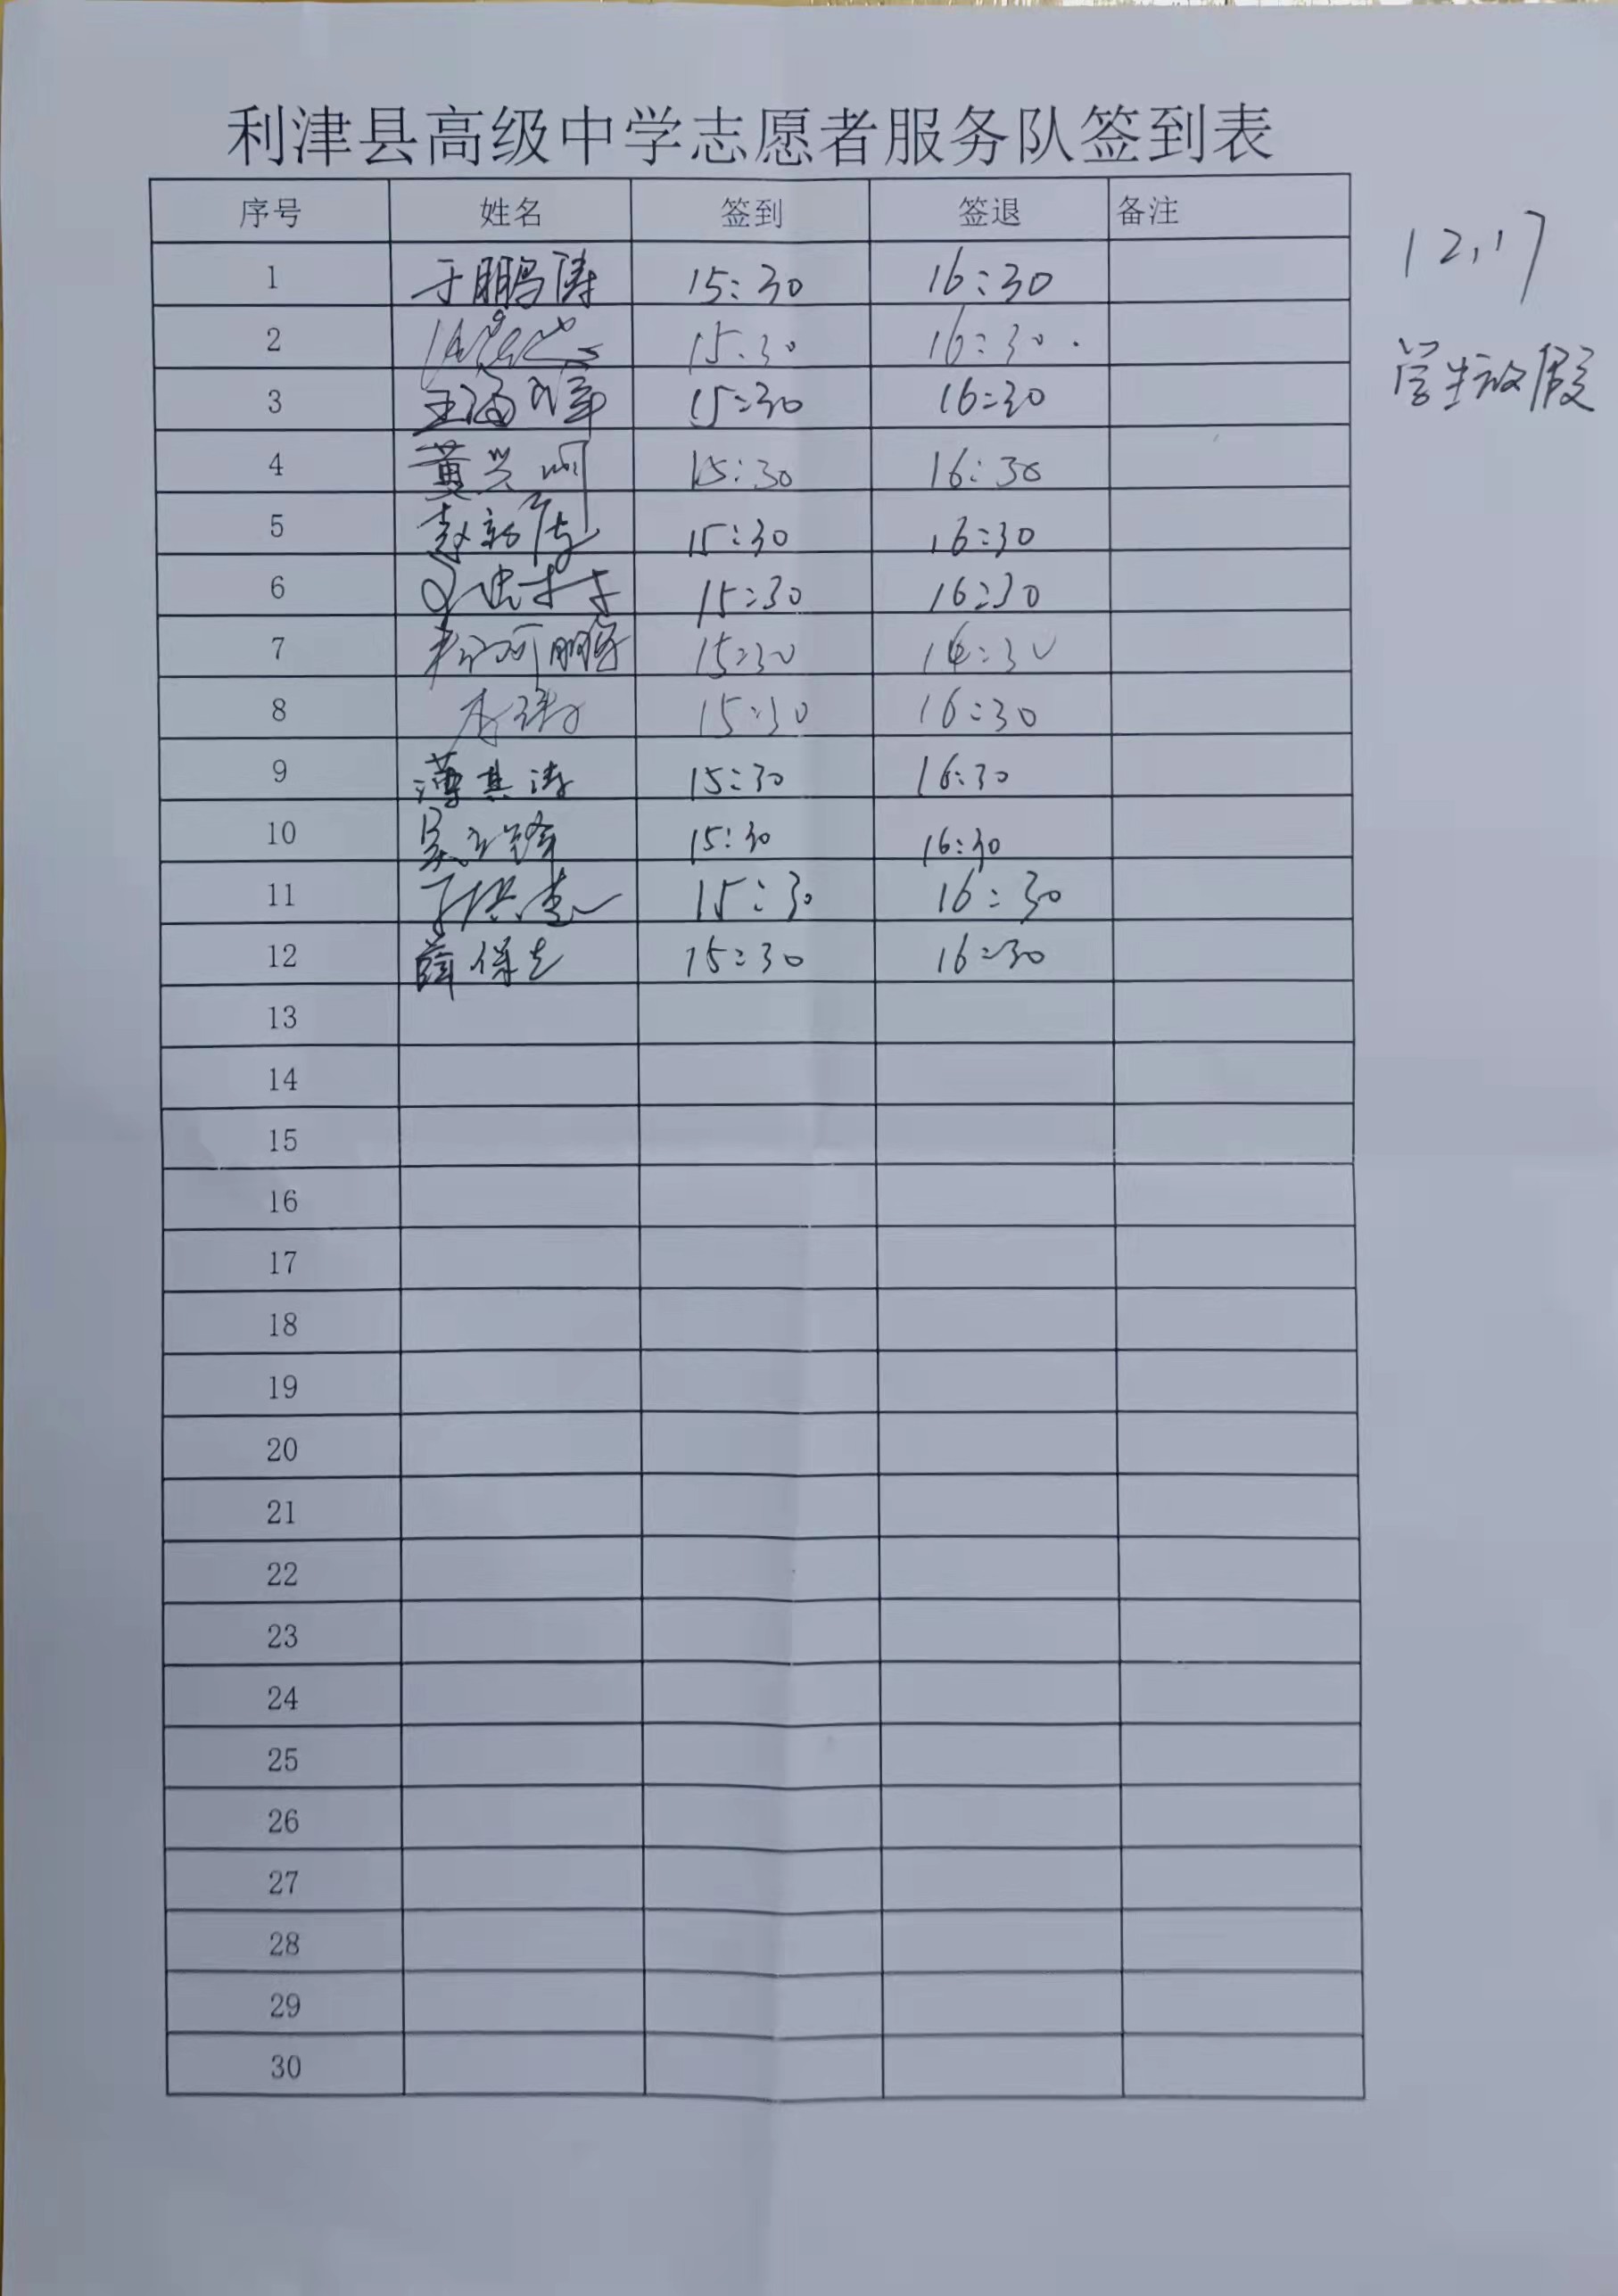 利津县高级中学志愿者服务队签到表
序号 姓名 签到 签退 备注
12,17
学生放假
1 于鹏涛 15:30 16:30
2 15:30 16:30
3 王海峰 15:30 16:30
4 黄兴刚 15:30 16:30
5 赵新虎 15:30 16:30
6 15:30 16:30
7 鹏 15:30 16:30
8 李 15:30 16:30
9 薄其涛 15:30 16:30
10 吴立锋 15:30 16:30
11 于洪 15:30 16:30
12 薛保 15:30 16:30
13
14
15
16
17
18
19
20
21
22
23
24
25
26
27
28
29
30